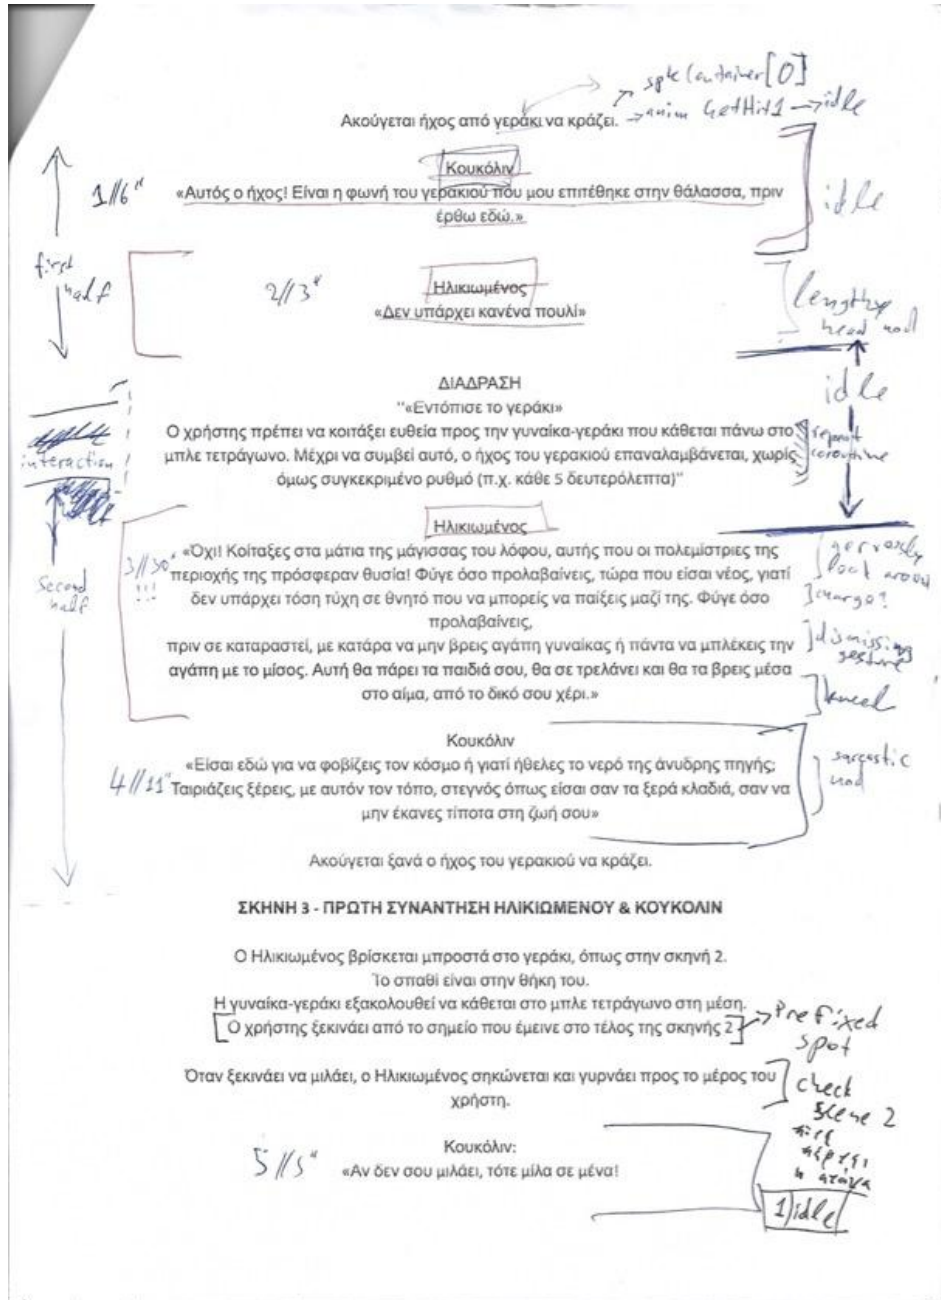 spkContainer[0]
Ακούγεται ήχος από γεράκι να κράζει. → anim GetHit1 → idle
Κουκόλιν
1//6"
«Αυτός ο ήχος! Είναι η φωνή του γερακιού που μου επιτέθηκε στην θάλασσα, πριν
έρθω εδώ.»
idle
first
half
2//3"
Ηλικιωμένος
«Δεν υπάρχει κανένα πουλί»
lengthy
head nod
ΔΙΑΔΡΑΣΗ
idle
"«Εντόπισε το γεράκι»
Ο χρήστης πρέπει να κοιτάξει ευθεία προς την γυναίκα-γεράκι που κάθεται πάνω στο
μπλε τετράγωνο. Μέχρι να συμβεί αυτό, ο ήχος του γερακιού επαναλαμβάνεται, χωρίς
όμως συγκεκριμένο ρυθμό (π.χ. κάθε 5 δευτερόλεπτα)"
repeat
coroutine
interaction
Ηλικιωμένος
3//30"
!!!
«Όχι! Κοίταξες στα μάτια της μάγισσας του λόφου, αυτής που οι πολεμίστριες της
περιοχής της πρόσφεραν θυσία! Φύγε όσο προλαβαίνεις, τώρα που είσαι νέος, γιατί
δεν υπάρχει τόση τύχη σε θνητό που να μπορείς να παίξεις μαζί της. Φύγε όσο
προλαβαίνεις,
πριν σε καταραστεί, με κατάρα να μην βρεις αγάπη γυναίκας ή πάντα να μπλέκεις την
αγάπη με το μίσος. Αυτή θα πάρει τα παιδιά σου, θα σε τρελάνει και θα τα βρεις μέσα
στο αίμα, από το δικό σου χέρι.»
nervously
look around
charge?
dismissing
gesture
kneel
second
half
Κουκόλιν
4//11"
«Είσαι εδώ για να φοβίζεις τον κόσμο ή γιατί ήθελες το νερό της άνυδρης πηγής;
Ταιριάζεις ξέρεις, με αυτόν τον τόπο, στεγνός όπως είσαι σαν τα ξερά κλαδιά, σαν να
μην έκανες τίποτα στη ζωή σου»
sarcastic
nod
Ακούγεται ξανά ο ήχος του γερακιού να κράζει.
ΣΚΗΝΗ 3 - ΠΡΩΤΗ ΣΥΝΑΝΤΗΣΗ ΗΛΙΚΙΩΜΕΝΟΥ & ΚΟΥΚΟΛΙΝ
Ο Ηλικιωμένος βρίσκεται μπροστά στο γεράκι, όπως στην σκηνή 2.
Το σπαθί είναι στην θήκη του.
Η γυναίκα-γεράκι εξακολουθεί να κάθεται στο μπλε τετράγωνο στη μέση.
Ο χρήστης ξεκινάει από το σημείο που έμεινε στο τέλος της σκηνής 2
Prefixed
spot
Όταν ξεκινάει να μιλάει, ο Ηλικιωμένος σηκώνεται και γυρνάει προς το μέρος του
χρήστη.
check
scene 2
Κουκόλιν:
5//5"
«Αν δεν σου μιλάει, τότε μίλα σε μένα!
1) idle